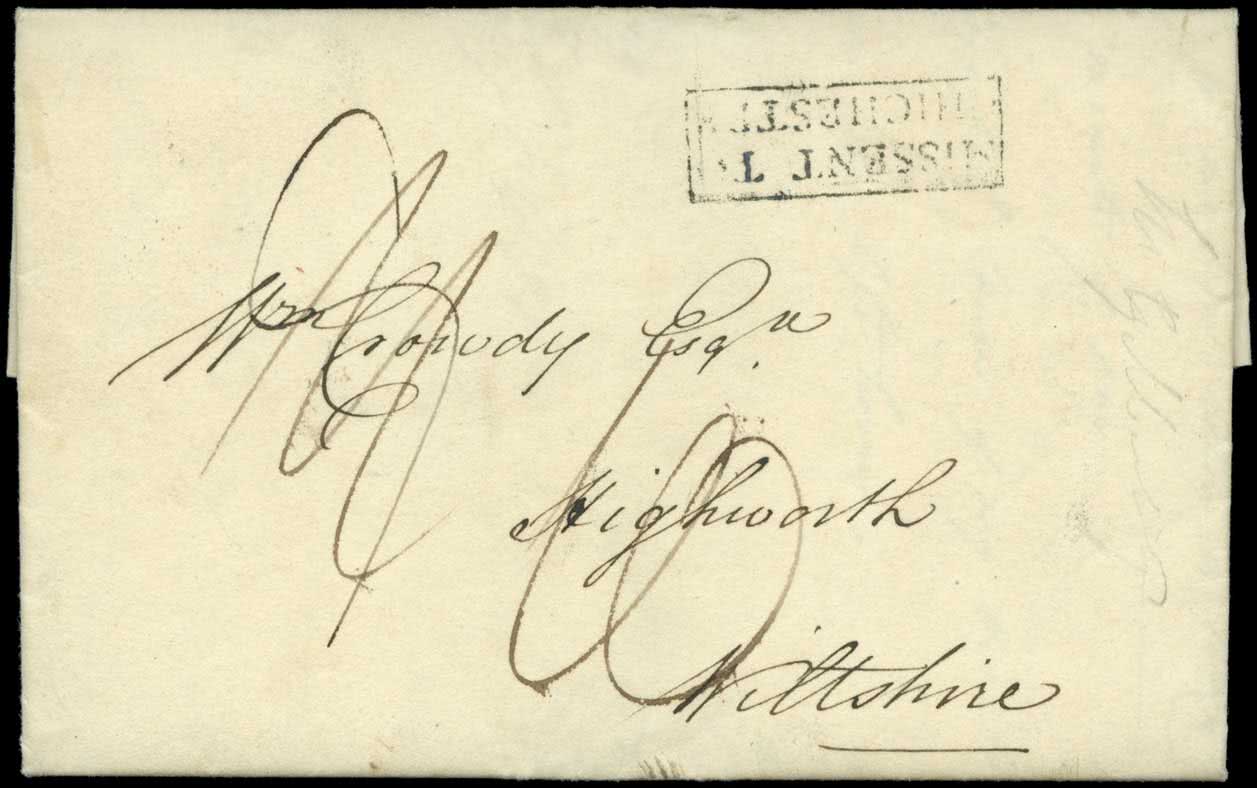 MISSENT TO
CHICHESTER
Wm Crowdy Esqre
Highworth
Wiltshire